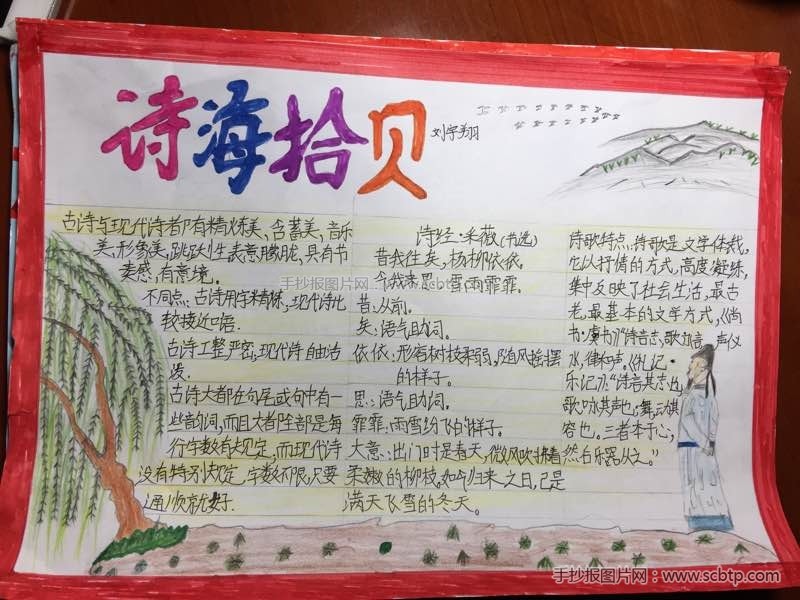 诗海拾贝
刘宇翔
古诗与现代诗都有精炼美、含蓄美、音乐
美、形象美,跳跃性表意朦胧,具有节
奏感,有意境。
不同点:古诗用字精炼,现代诗比
较接近口语.
古诗工整严密,现代诗自由活
泼.
古诗大都在句尾或句中有一
些韵词,而且大都全部是每
行字数有规定,而现代诗
没有特别规定,字数不限,只要
通顺就好.
诗经·采薇(节选)
昔我往矣,杨柳依依.
今我来思,雨雪霏霏.
昔:从前.
矣:语气助词.
依依:形容树枝柔弱,随风摇摆
的样子.
思:语气助词.
霏霏:雨雪纷飞的样子.
大意:出门时是春天,微风吹拂着
柔嫩的柳枝.如今归来之日,已是
满天飞雪的冬天.
诗歌特点:诗歌是文学体裁,
它以抒情的方式,高度凝练,
集中反映了社会生活,最古
老、最基本的文学方式,《尚
书·虞书》:"诗言志,歌永言,声依
永,律和声。《礼记·
乐记》:"诗言其志也,
歌咏其声也;舞动其
容也。三者本于心,
然后乐器从之。"
手抄报图片网:www.scbtp.com
手抄报图片网:www.scbtp.com